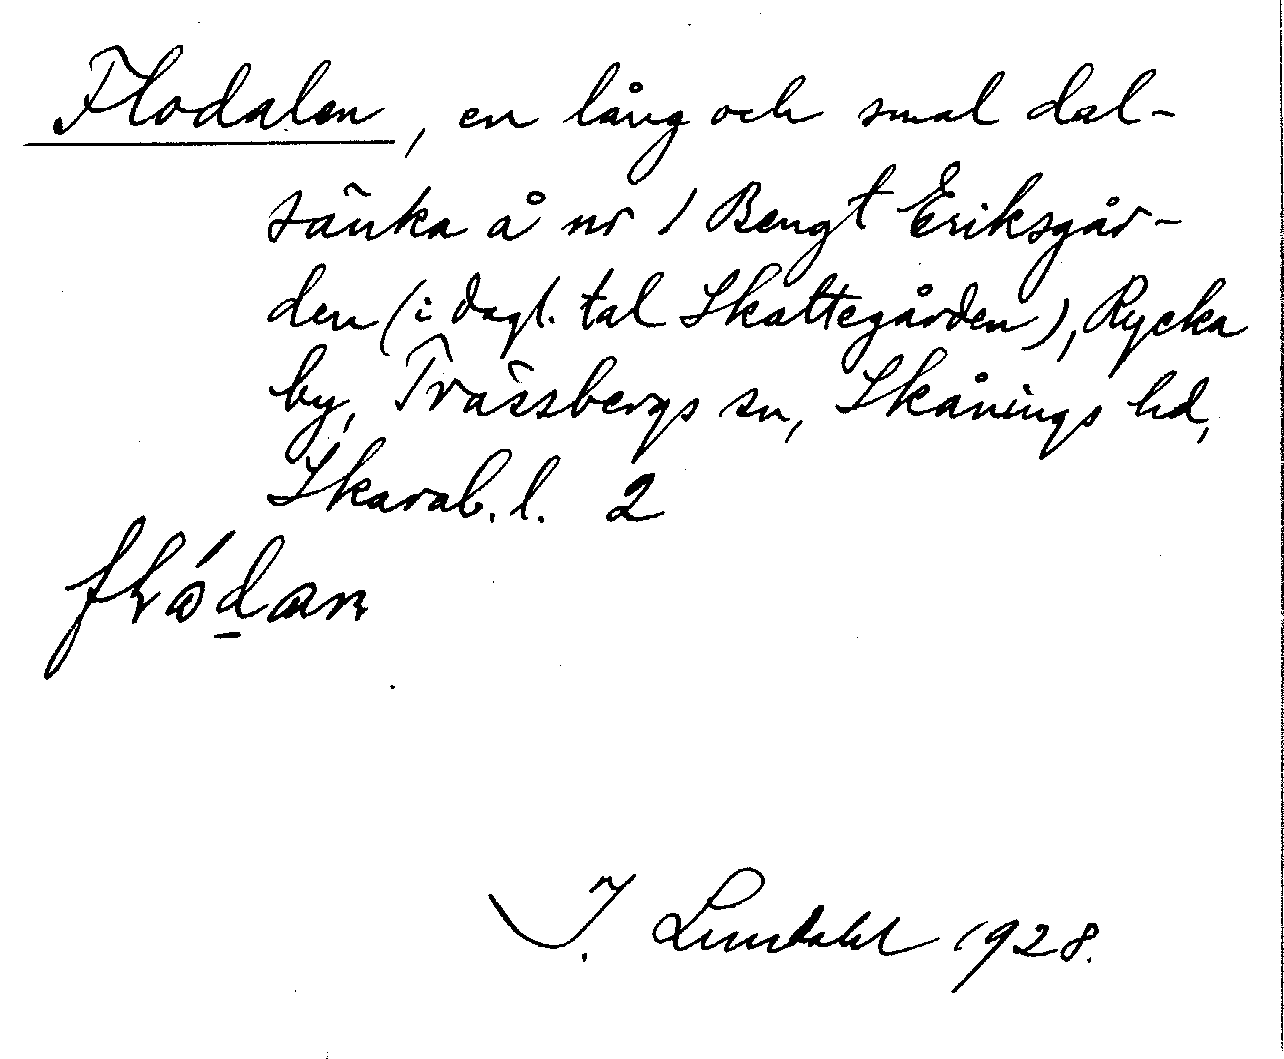 Flodalen, en lång och smal dal-
sänka å nr 1 Bengt Eriksgår-
den (i dagl. tal Skattegården), Rycka
by, Trässbergs sn, Skånings hd,
Skarab. l. 2
I. Lundahl 1928.